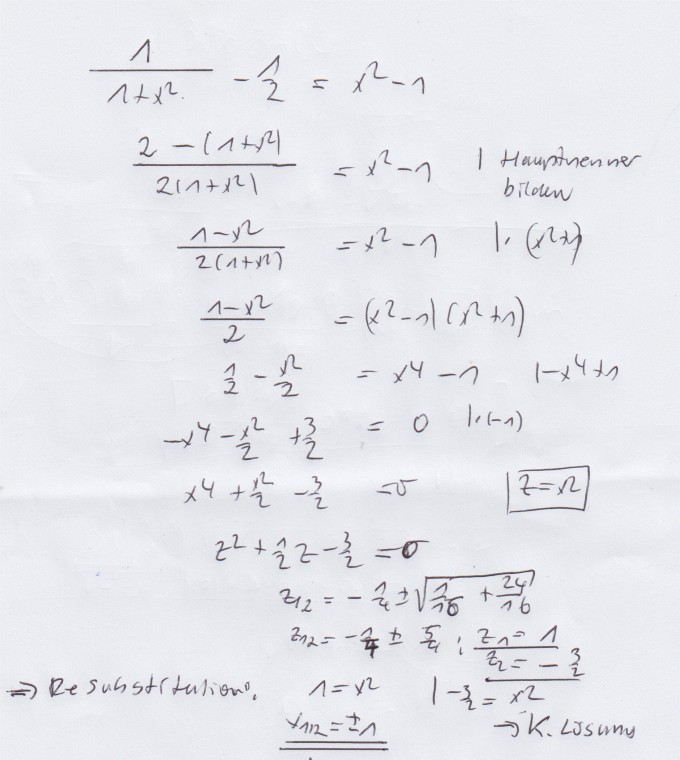 1/(1+x²) - 1/2 = x² - 1
(2 - (1+x²))/(2(1+x²)) = x² - 1 | Hauptnenner
bilden
(1-x²)/(2(1+x²)) = x² - 1 |· (x²+1)
(1-x²)/2 = (x²-1)(x²+1)
1/2 - x²/2 = x⁴ - 1 |-x⁴+1
-x⁴ - x²/2 + 3/2 = 0 |·(-1)
x⁴ + x²/2 - 3/2 = 0 | z = x²
z² + 1/2 z - 3/2 = 0
z₁₂ = - 1/4 ± √(1/16 + 24/16)
z₁₂ = - 1/4 ± 5/4 ; z₁ = 1
z₂ = - 3/2
=> Resubstitution: 1 = x² | -3/2 = x²
x₁/₂ = ±1 → K. Lösung